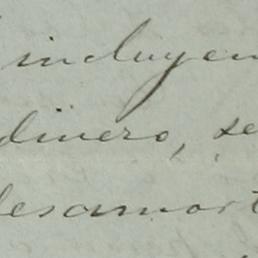 incluyen
dinero, se
desamort